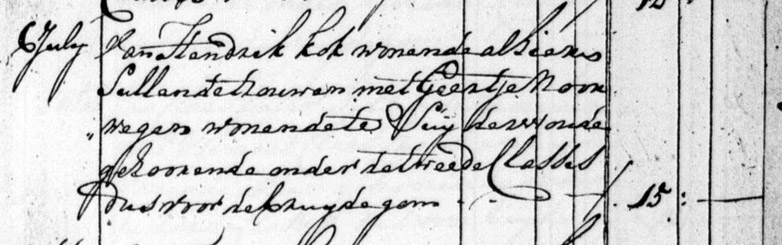 6 July Van Hendrik Kok wonende alhier
Sullende trouwen met Geertje Noor
„wegen wonende te Suyderwoude
gehoorende onder de tweede Classes
dus voor de bruydegom - - - f 15:—